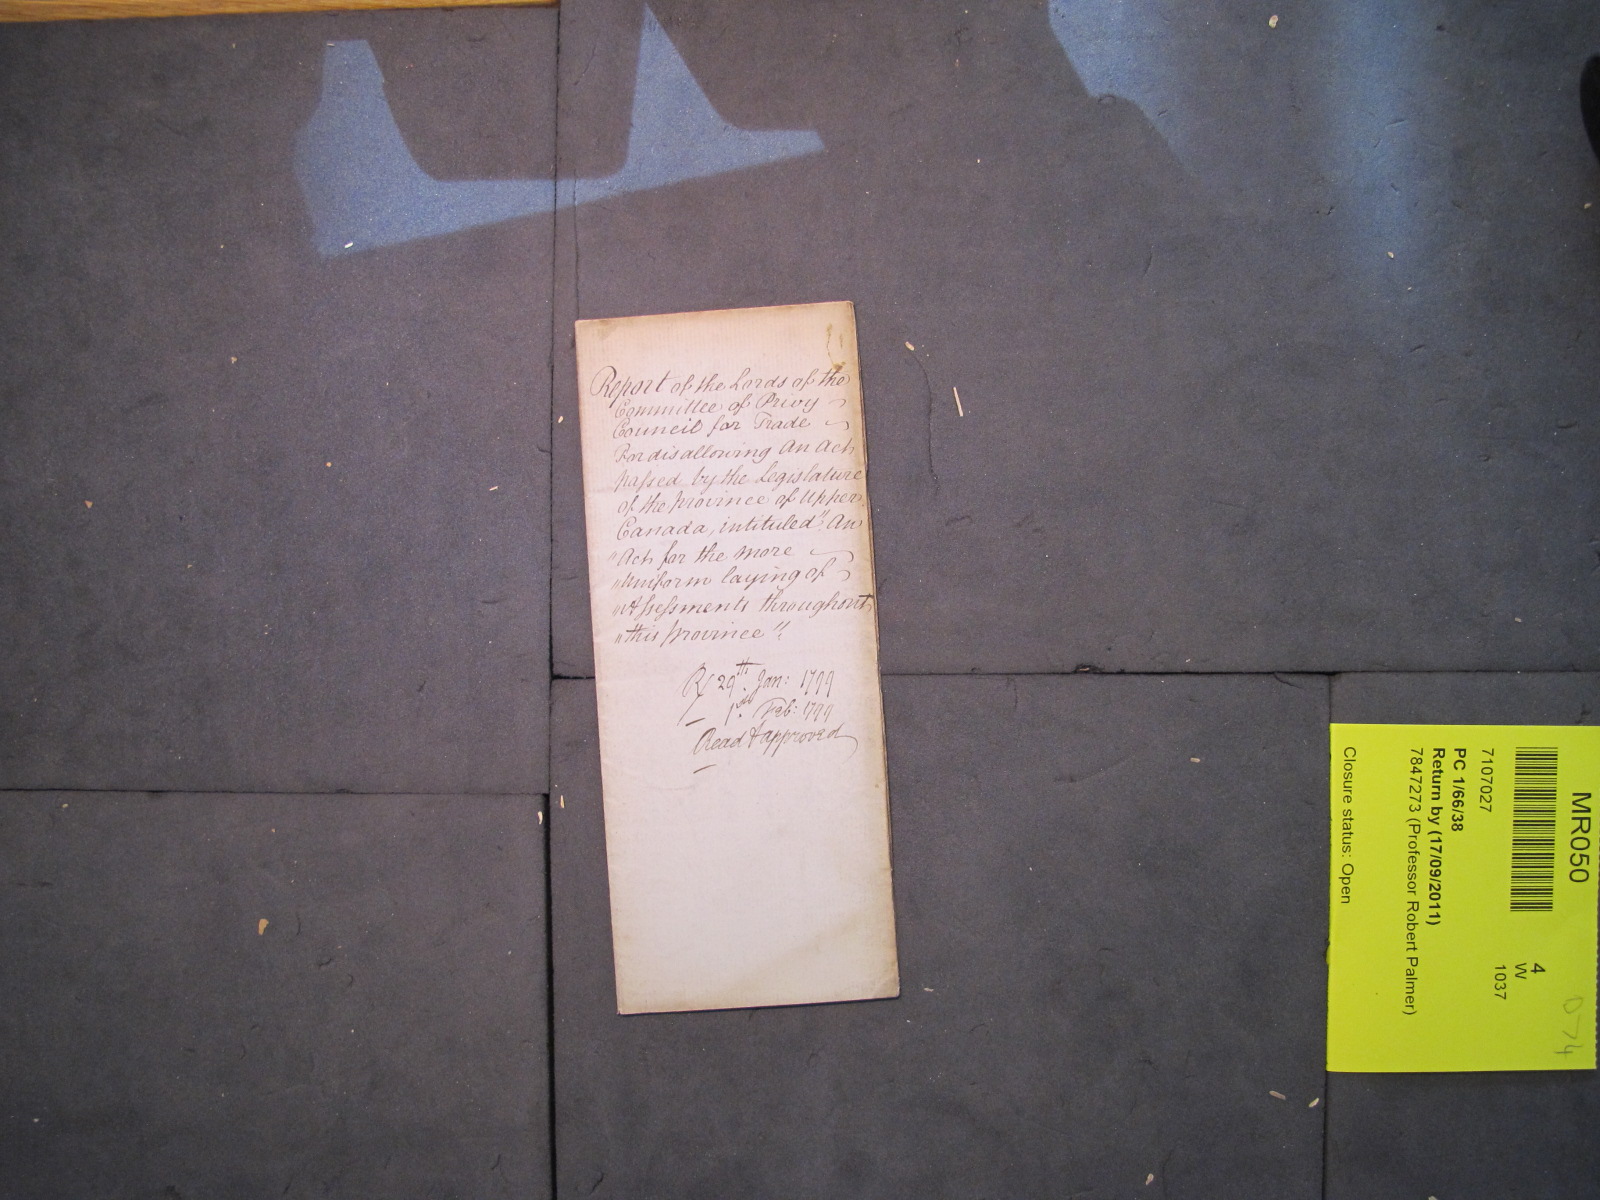 Report of the Lords of the
Committee of Privy
Council for Trade
For disallowing An Act
passed by the Legislature
of the province of Upper
Canada, intituled "An
"Act for the more
"Uniform laying of
"Assessments throughout
"this province".
R/ 29th. Jan: 1799
1st. Feb: 1799
Read & approved
MR050
7107027
PC 1/66/38
Return by (17/09/2011)
7847273 (Professor Robert Palmer)
Closure status: Open
4
W
1037